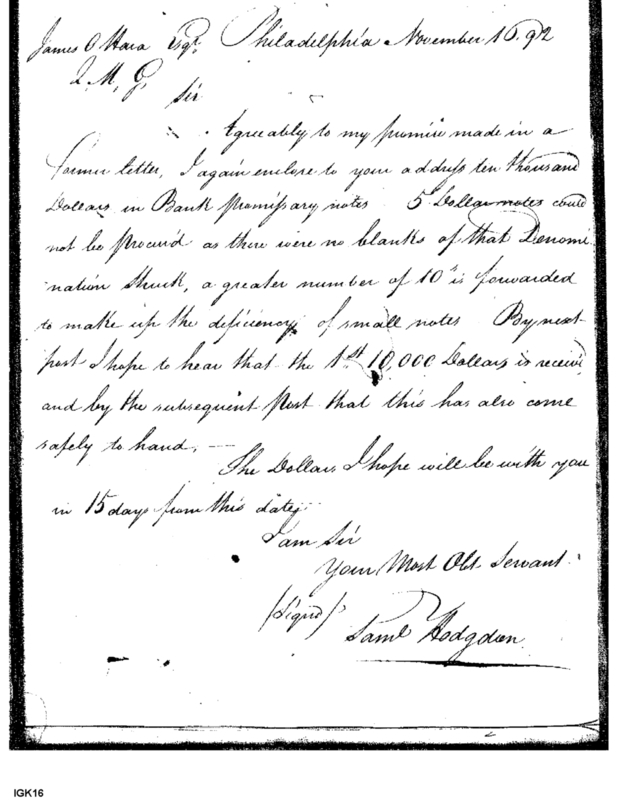 James O Hara Esqr. Philadelphia November 16. 92
Q. M. G.
Sir
Agreeably to my promise made in a
former letter, I again enclose to your address ten thousand
Dollars in Bank promissary notes 5 Dollar notes could
not be procur'd as there were no blanks of that Denomi
nation struck, a greater number of 10s is forwarded
to make up the deficiency of small notes By next
post I hope to hear that the 1st 10,000 Dollars is receiv'd
and by the subsequent Post that this has also come
safely to hand. —
The Dollars I hope will be with you
in 15 days from this date,
I am Sir
Your Most Obt Servant
(Signd)
Saml Hodgdon
IGK16